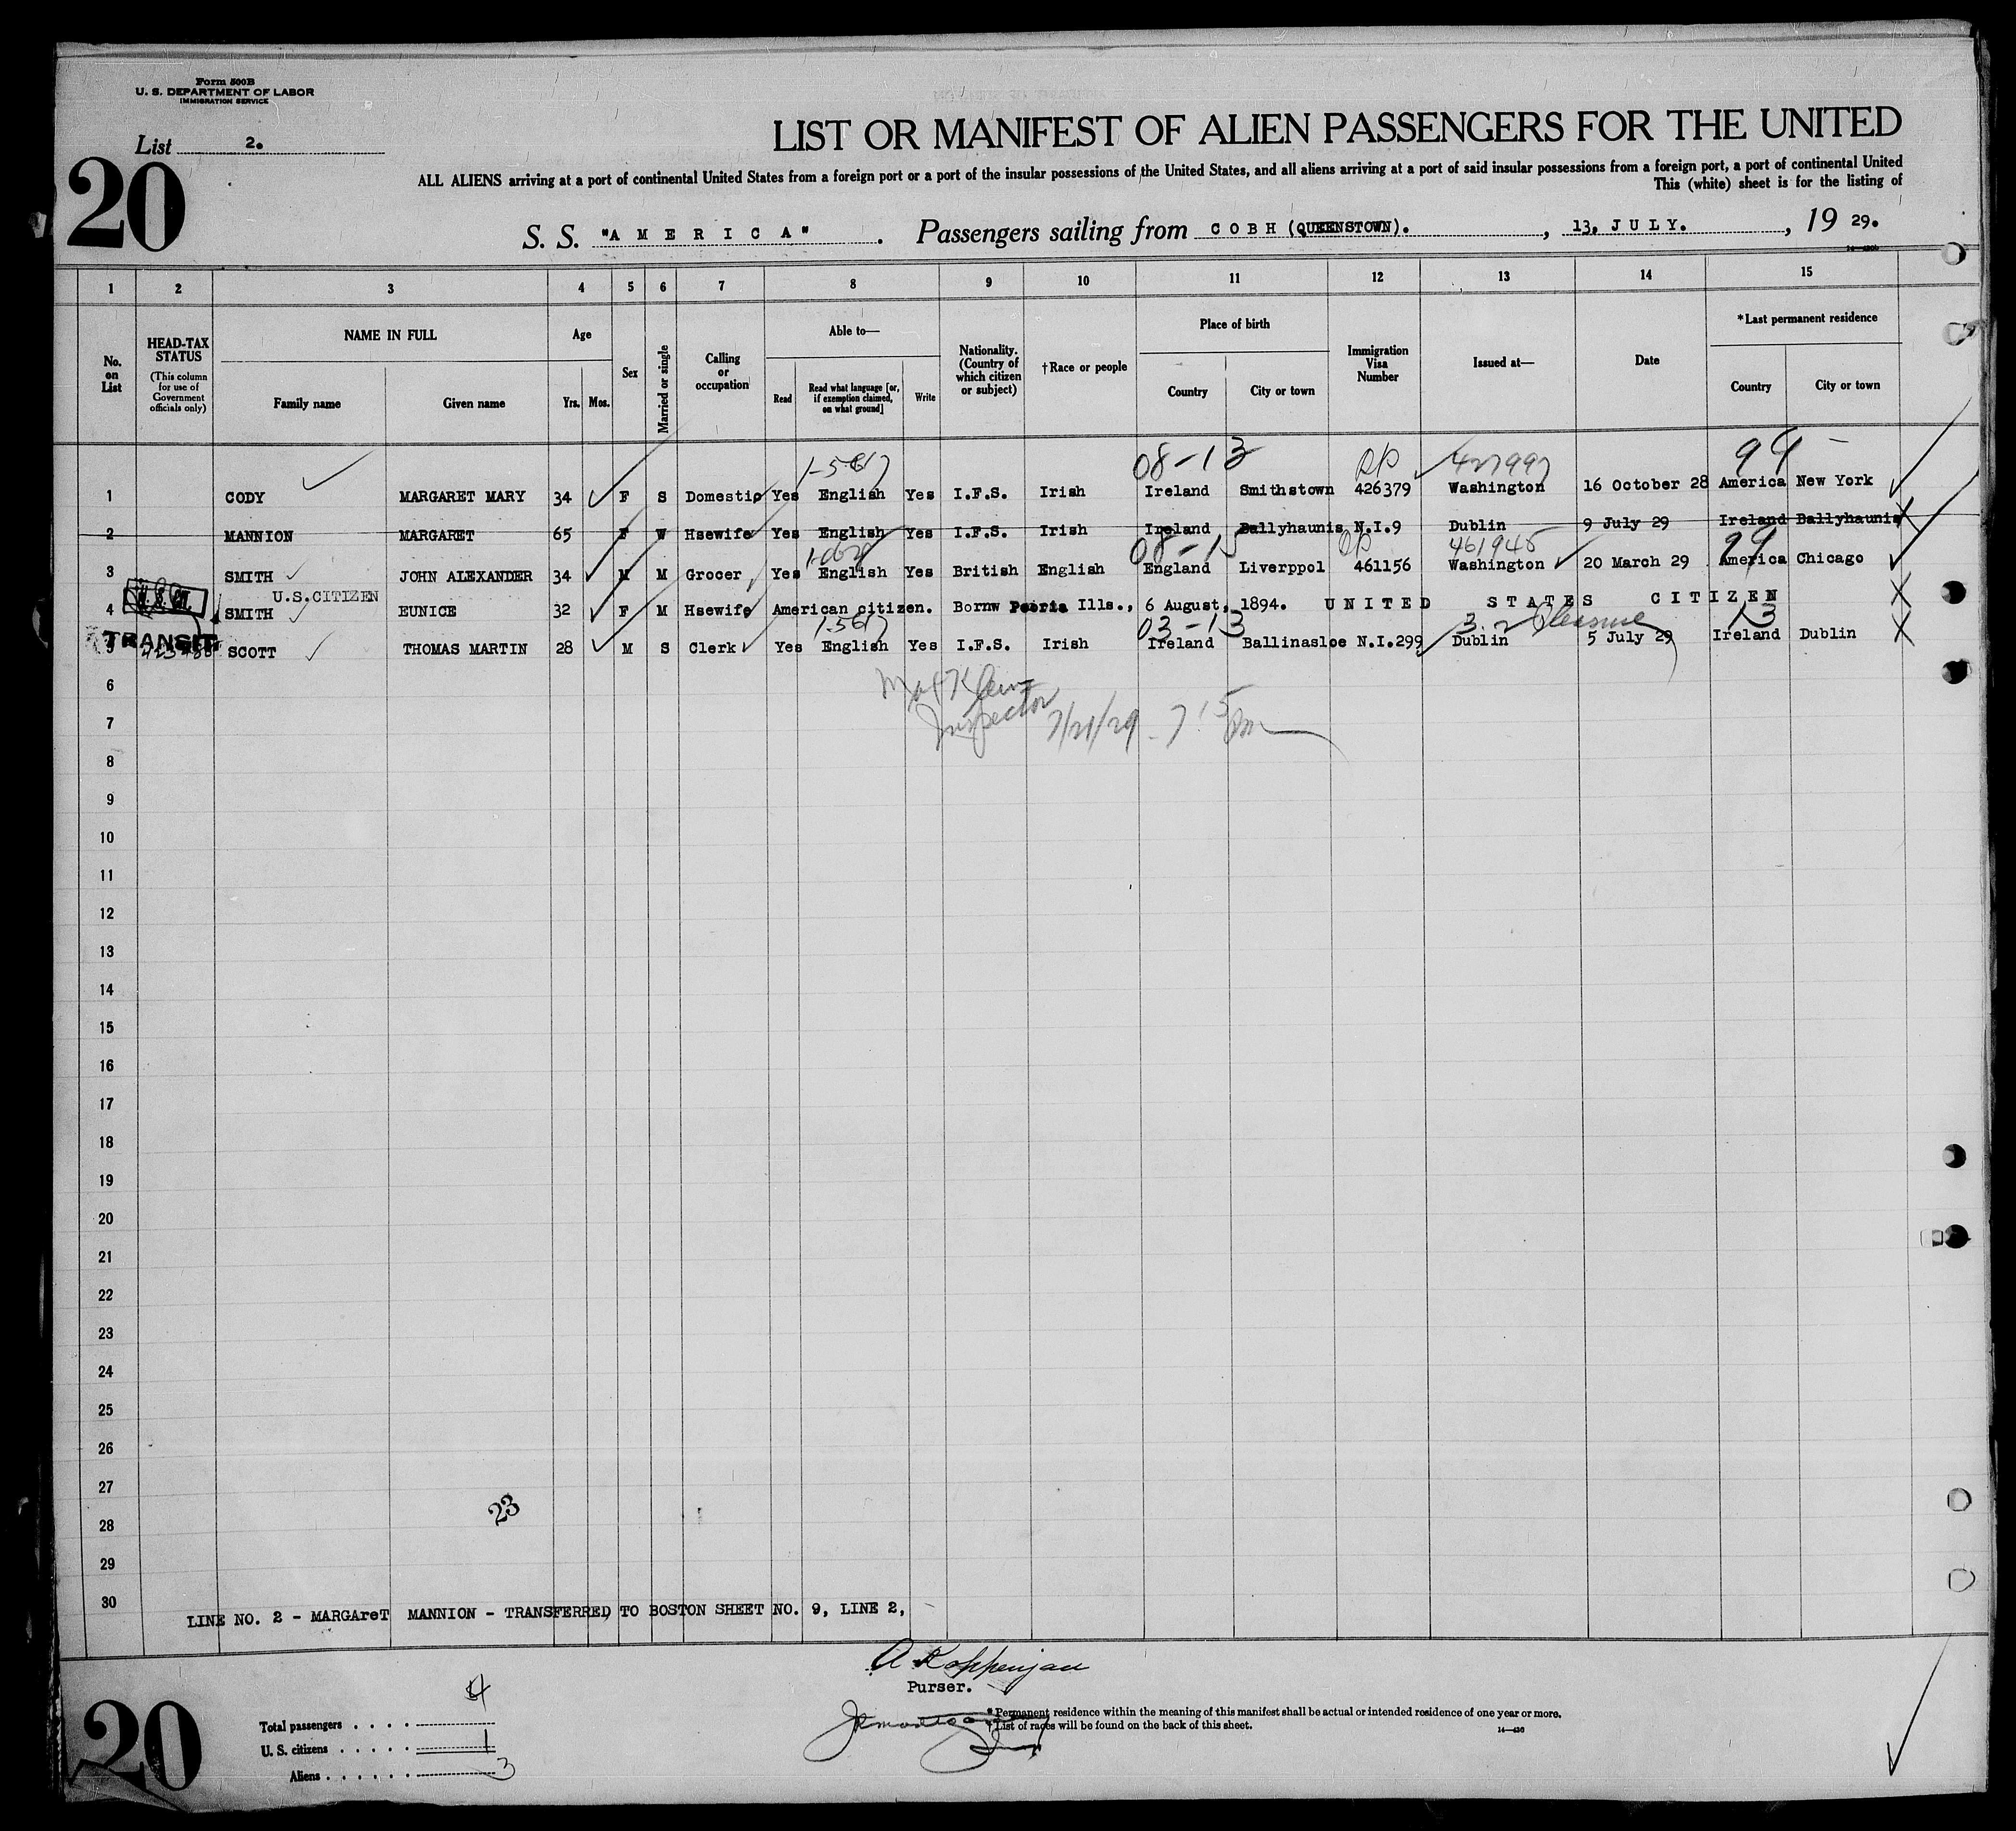 Form 500B
U. S. DEPARTMENT OF LABOR
IMMIGRATION SERVICE
List 2.
20
LIST OR MANIFEST OF ALIEN PASSENGERS FOR THE UNITED
ALL ALIENS arriving at a port of continental United States from a foreign port or a port of the insular possessions of the United States, and all aliens arriving at a port of said insular possessions from a foreign port, a port of continental United
This (white) sheet is for the listing of
S. S. "A M E R I C A" . Passengers sailing from C O B H (QUEENSTOWN). , 13, J U L Y. , 19 29.
1 2 3 4 5 6 7 8 9 10 11 12 13 14 15
No. on List
HEAD-TAX STATUS
(This column for use of Government officials only)
NAME IN FULL
Family name Given name
Age
Yrs. Mos.
Sex
Married or single
Calling or occupation
Able to—
Read
Read what language [or, if exemption claimed, on what ground]
Write
Nationality. (Country of which citizen or subject)
†Race or people
Place of birth
Country City or town
Immigration Visa Number
Issued at—
Date
*Last permanent residence
Country City or town
1-5617 08-13 RP 427997 99 -
1 CODY MARGARET MARY 34 F S Domestic Yes English Yes I.F.S. Irish Ireland Smithstown 426379 Washington 16 October 28 America New York
2 MANNION MARGARET 65 F W Hsewife Yes English Yes I.F.S. Irish Ireland Ballyhaunis N.I.9 Dublin 9 July 29 Ireland Ballyhaunis
08-15 RP 461945 99
3 SMITH JOHN ALEXANDER 34 M M Grocer Yes English Yes British English England Liverppol 461156 Washington 20 March 29 America Chicago
U.S.CITIZEN
4 SMITH EUNICE 32 F M Hsewife American citizen. Bornw Peoria Ills., 6 August, 1894. U N I T E D S T A T E S C I T I Z E N
1-5617 03-13 3.2 Pleasure 13
TRANSIT
5 SCOTT THOMAS MARTIN 28 M S Clerk Yes English Yes I.F.S. Irish Ireland Ballinasloe N.I.299 Dublin 5 July 29 Ireland Dublin
6
Inspector 7/21/29 - 7:15 Pm
7
8
9
10
11
12
13
14
15
16
17
18
19
20
21
22
23
24
25
26
27
23
28
29
30
LINE NO. 2 - MARGAreT MANNION - TRANSFERRED TO BOSTON SHEET NO. 9, LINE 2,
A Koppenjan
Purser.
20
Total passengers . . . . 4
U. S. citizens . . . . . 1
Aliens . . . . . . 3
* Permanent residence within the meaning of this manifest shall be actual or intended residence of one year or more.
† List of races will be found on the back of this sheet.
14—430